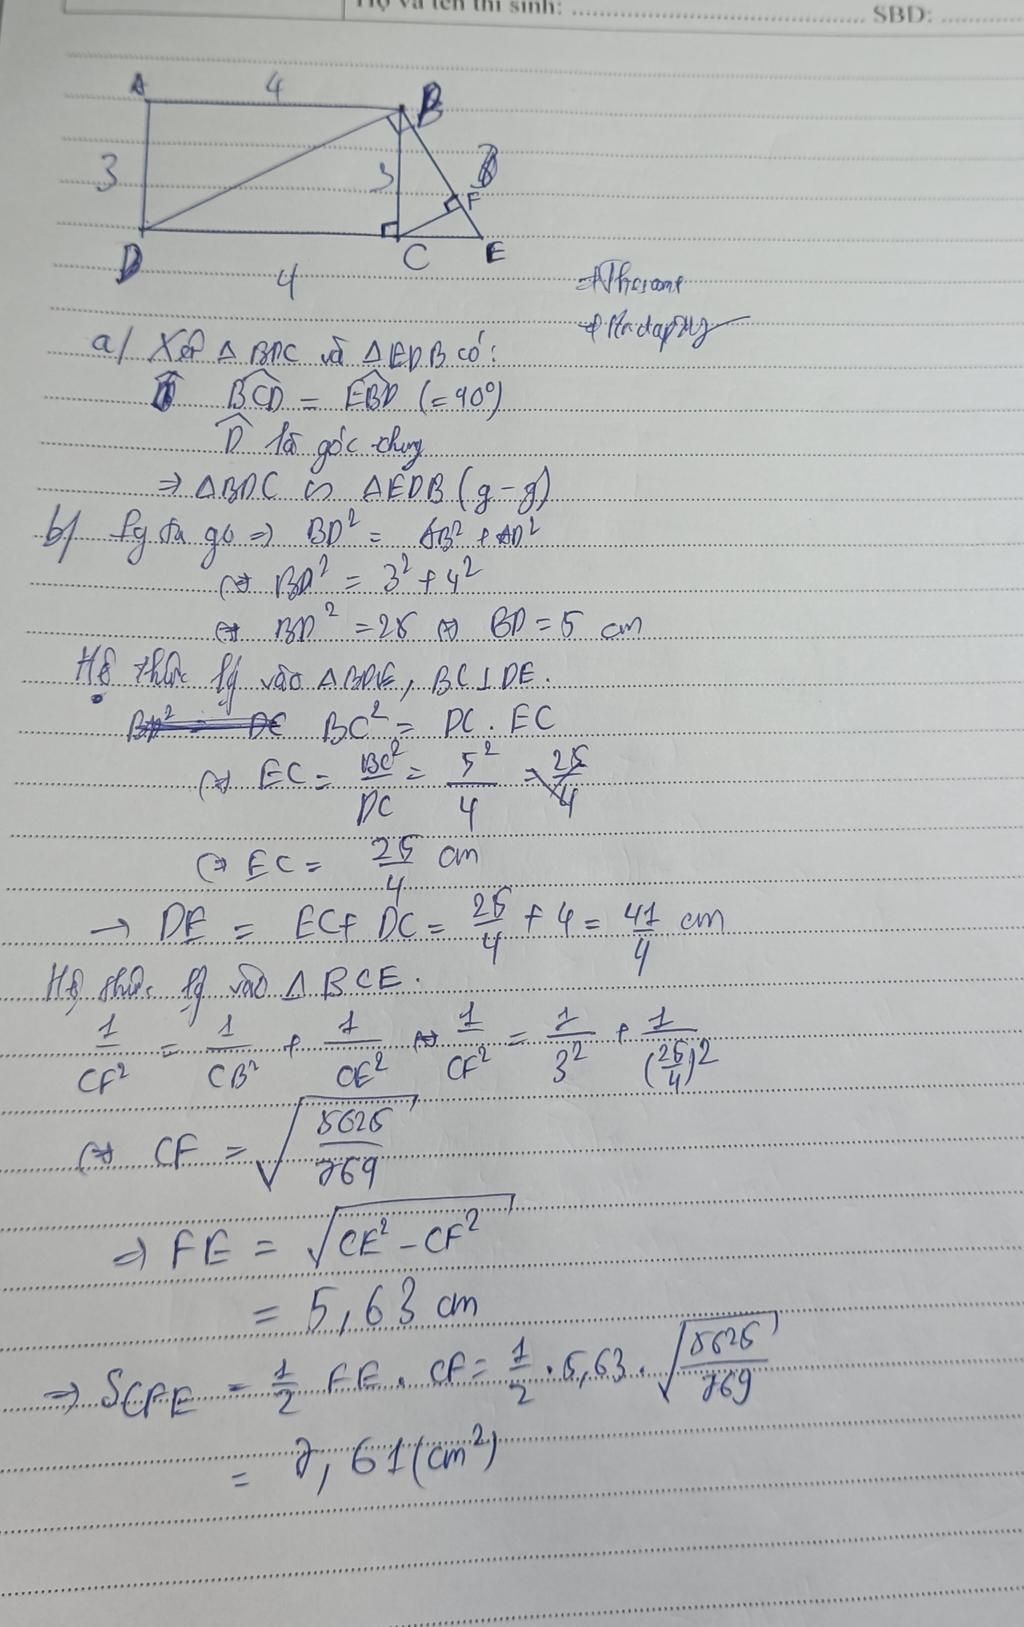 Họ và tên thí sinh: .......... SBD: ..........
A 4 B
3 3 F
D 4 C E
a/ Xét △BDC và △EDB có:
BCD = EBD (= 90°)
D là góc chung
⇒ △BDC ∽ △EDB (g-g)
b/ Py ta go ⇒ BD² = AB² + AD²
⇔ BD² = 3² + 4²
⇔ BD² = 25 ⇔ BD = 5 cm
Hệ thức lg vào △BDE, BC⊥DE.
BC² = DC . EC
⇔ EC = BC²/DC = 5²/4 = 25/4
⇔ EC = 25/4 cm
→ DE = EC + DC = 25/4 + 4 = 41/4 cm
Hệ thức lg vào △BCE.
1/CF² = 1/CB² + 1/CE² ⇔ 1/CF² = 1/3² + 1/(25/4)²
⇔ CF = √(5625/769)
⇒ FE = √(CE² - CF²)
= 5,63 cm
⇒ SCFE = 1/2 FE . CF = 1/2 . 5,63 . √(5625/769)
= 7,61 (cm²)